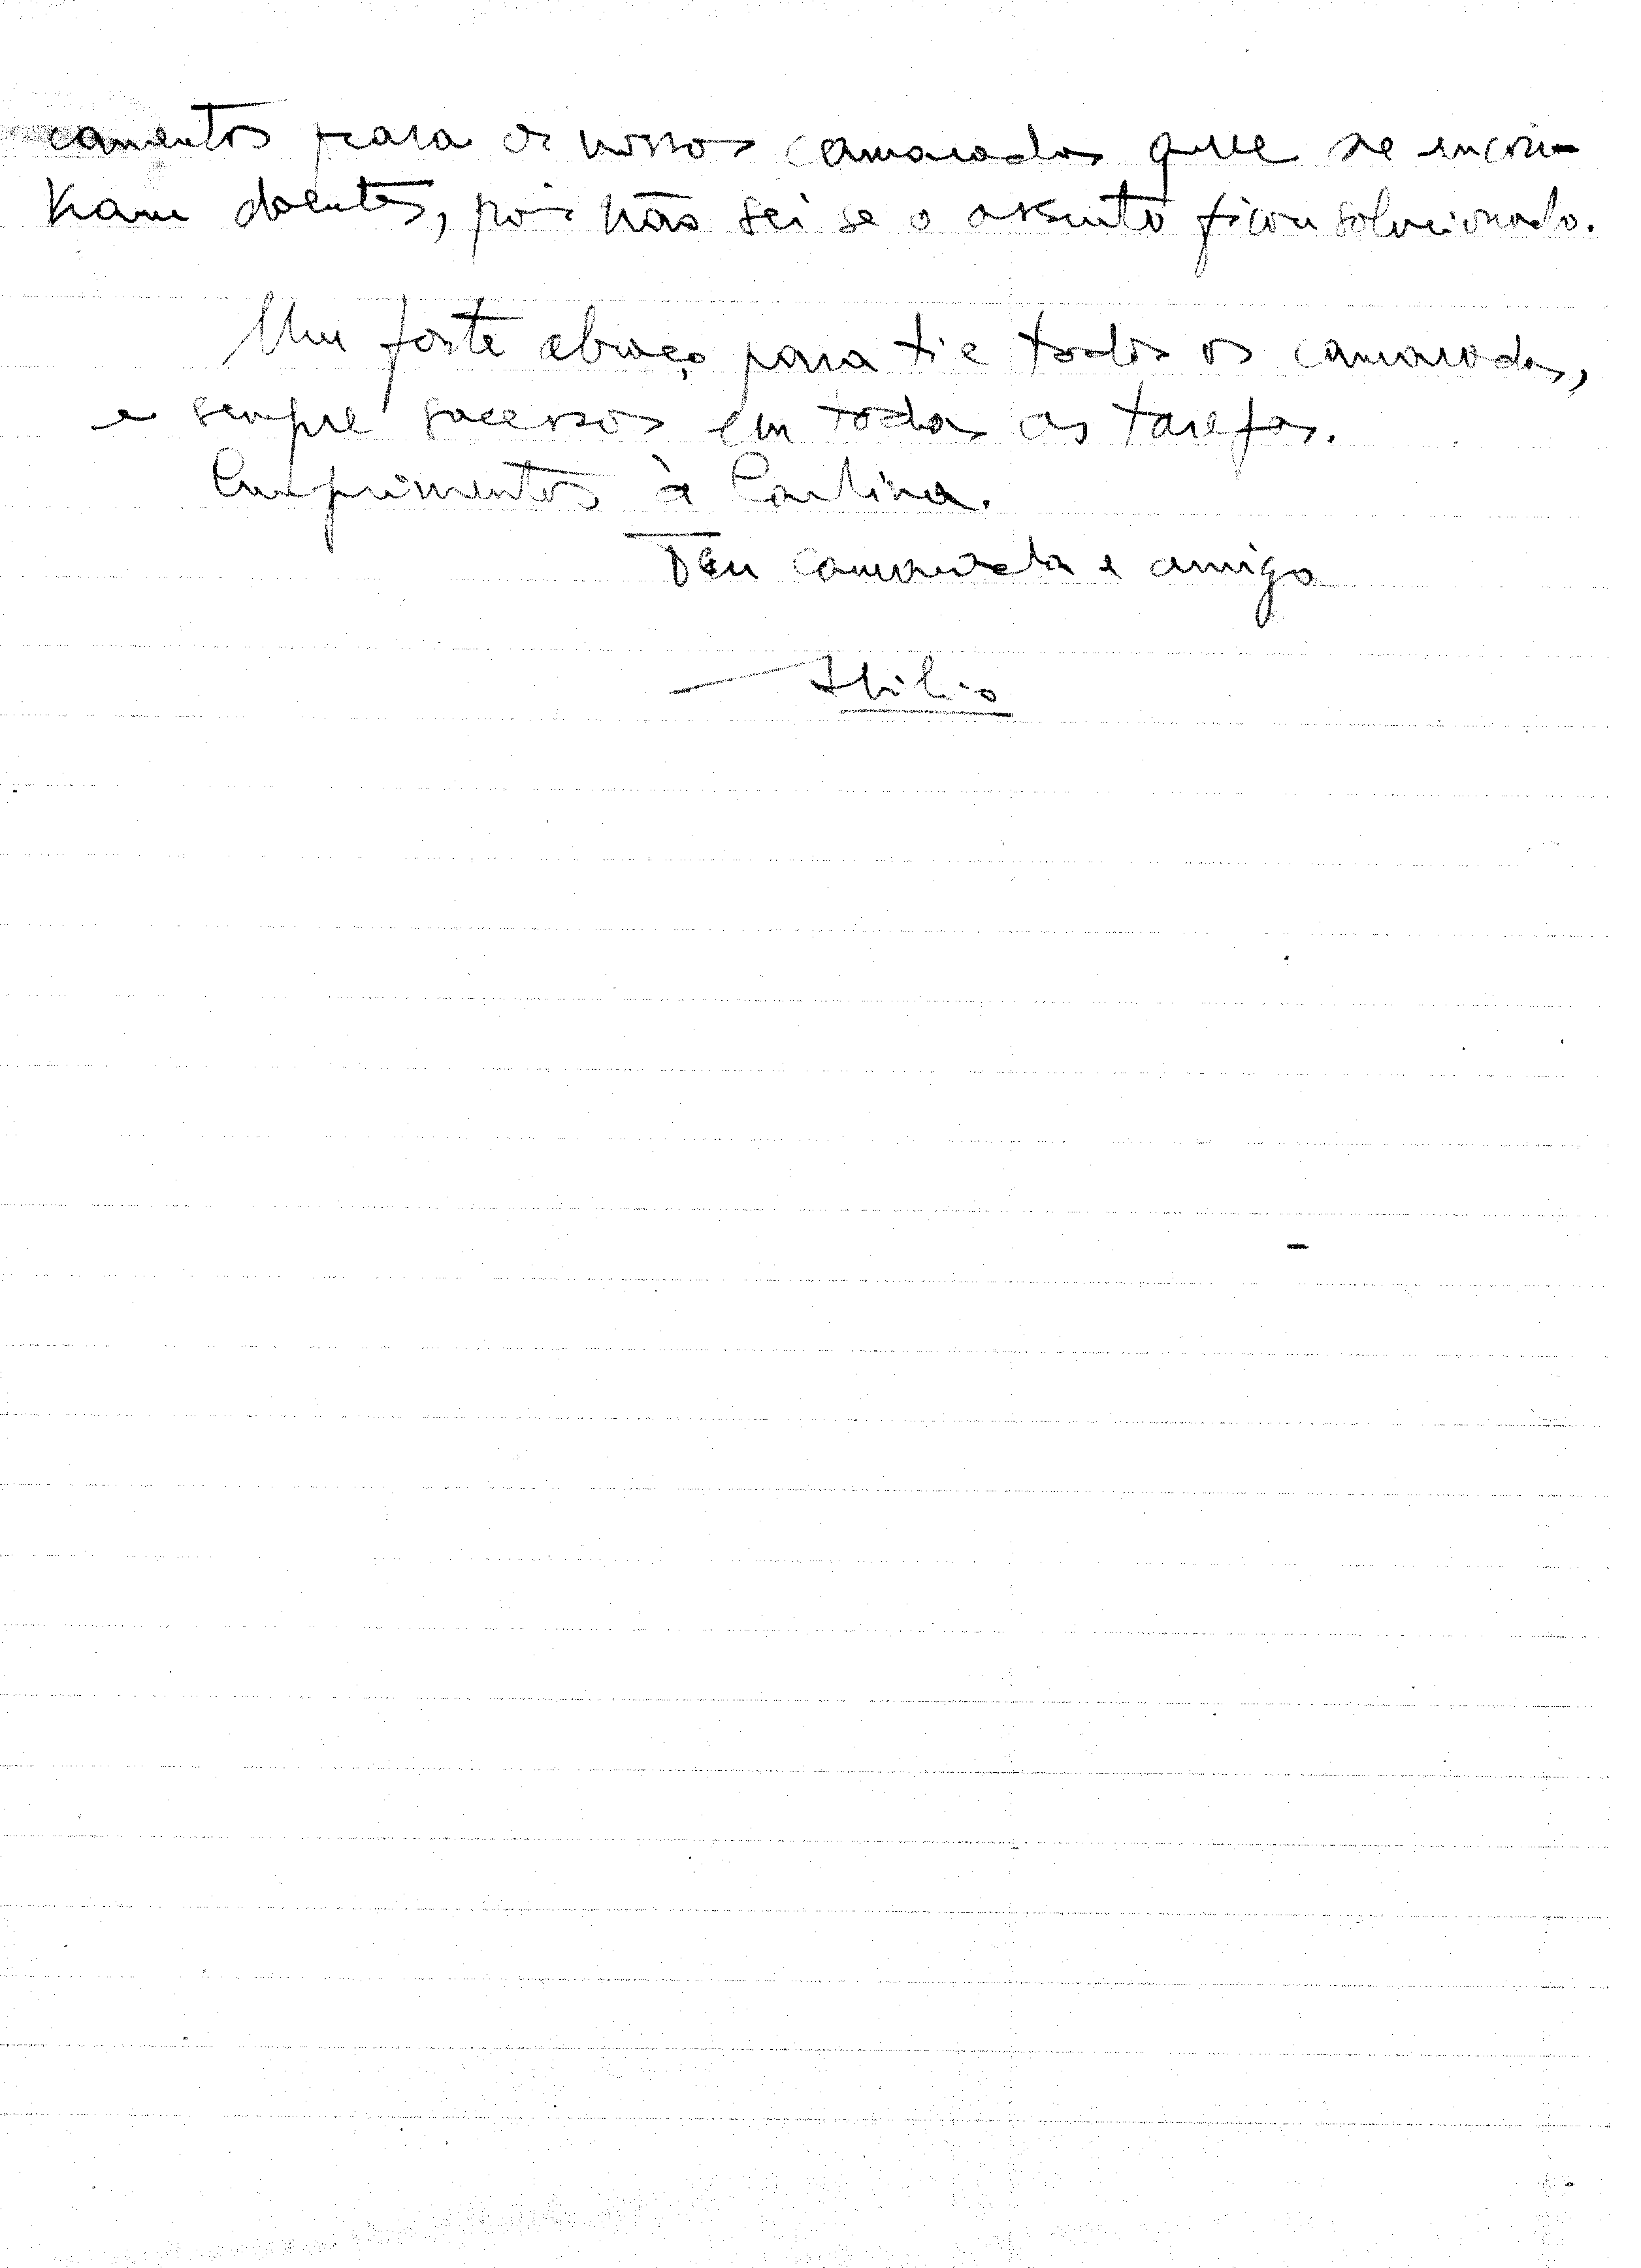 camentos para os nossos camaradas que se encon-
tram doentes, pois não sei se o assunto ficou solucionado.
Um forte abraço para ti e todos os camaradas,
e sempre sucessos em todas as tarefas.
Cumprimentos à Carlina.
Teu camarada e amigo